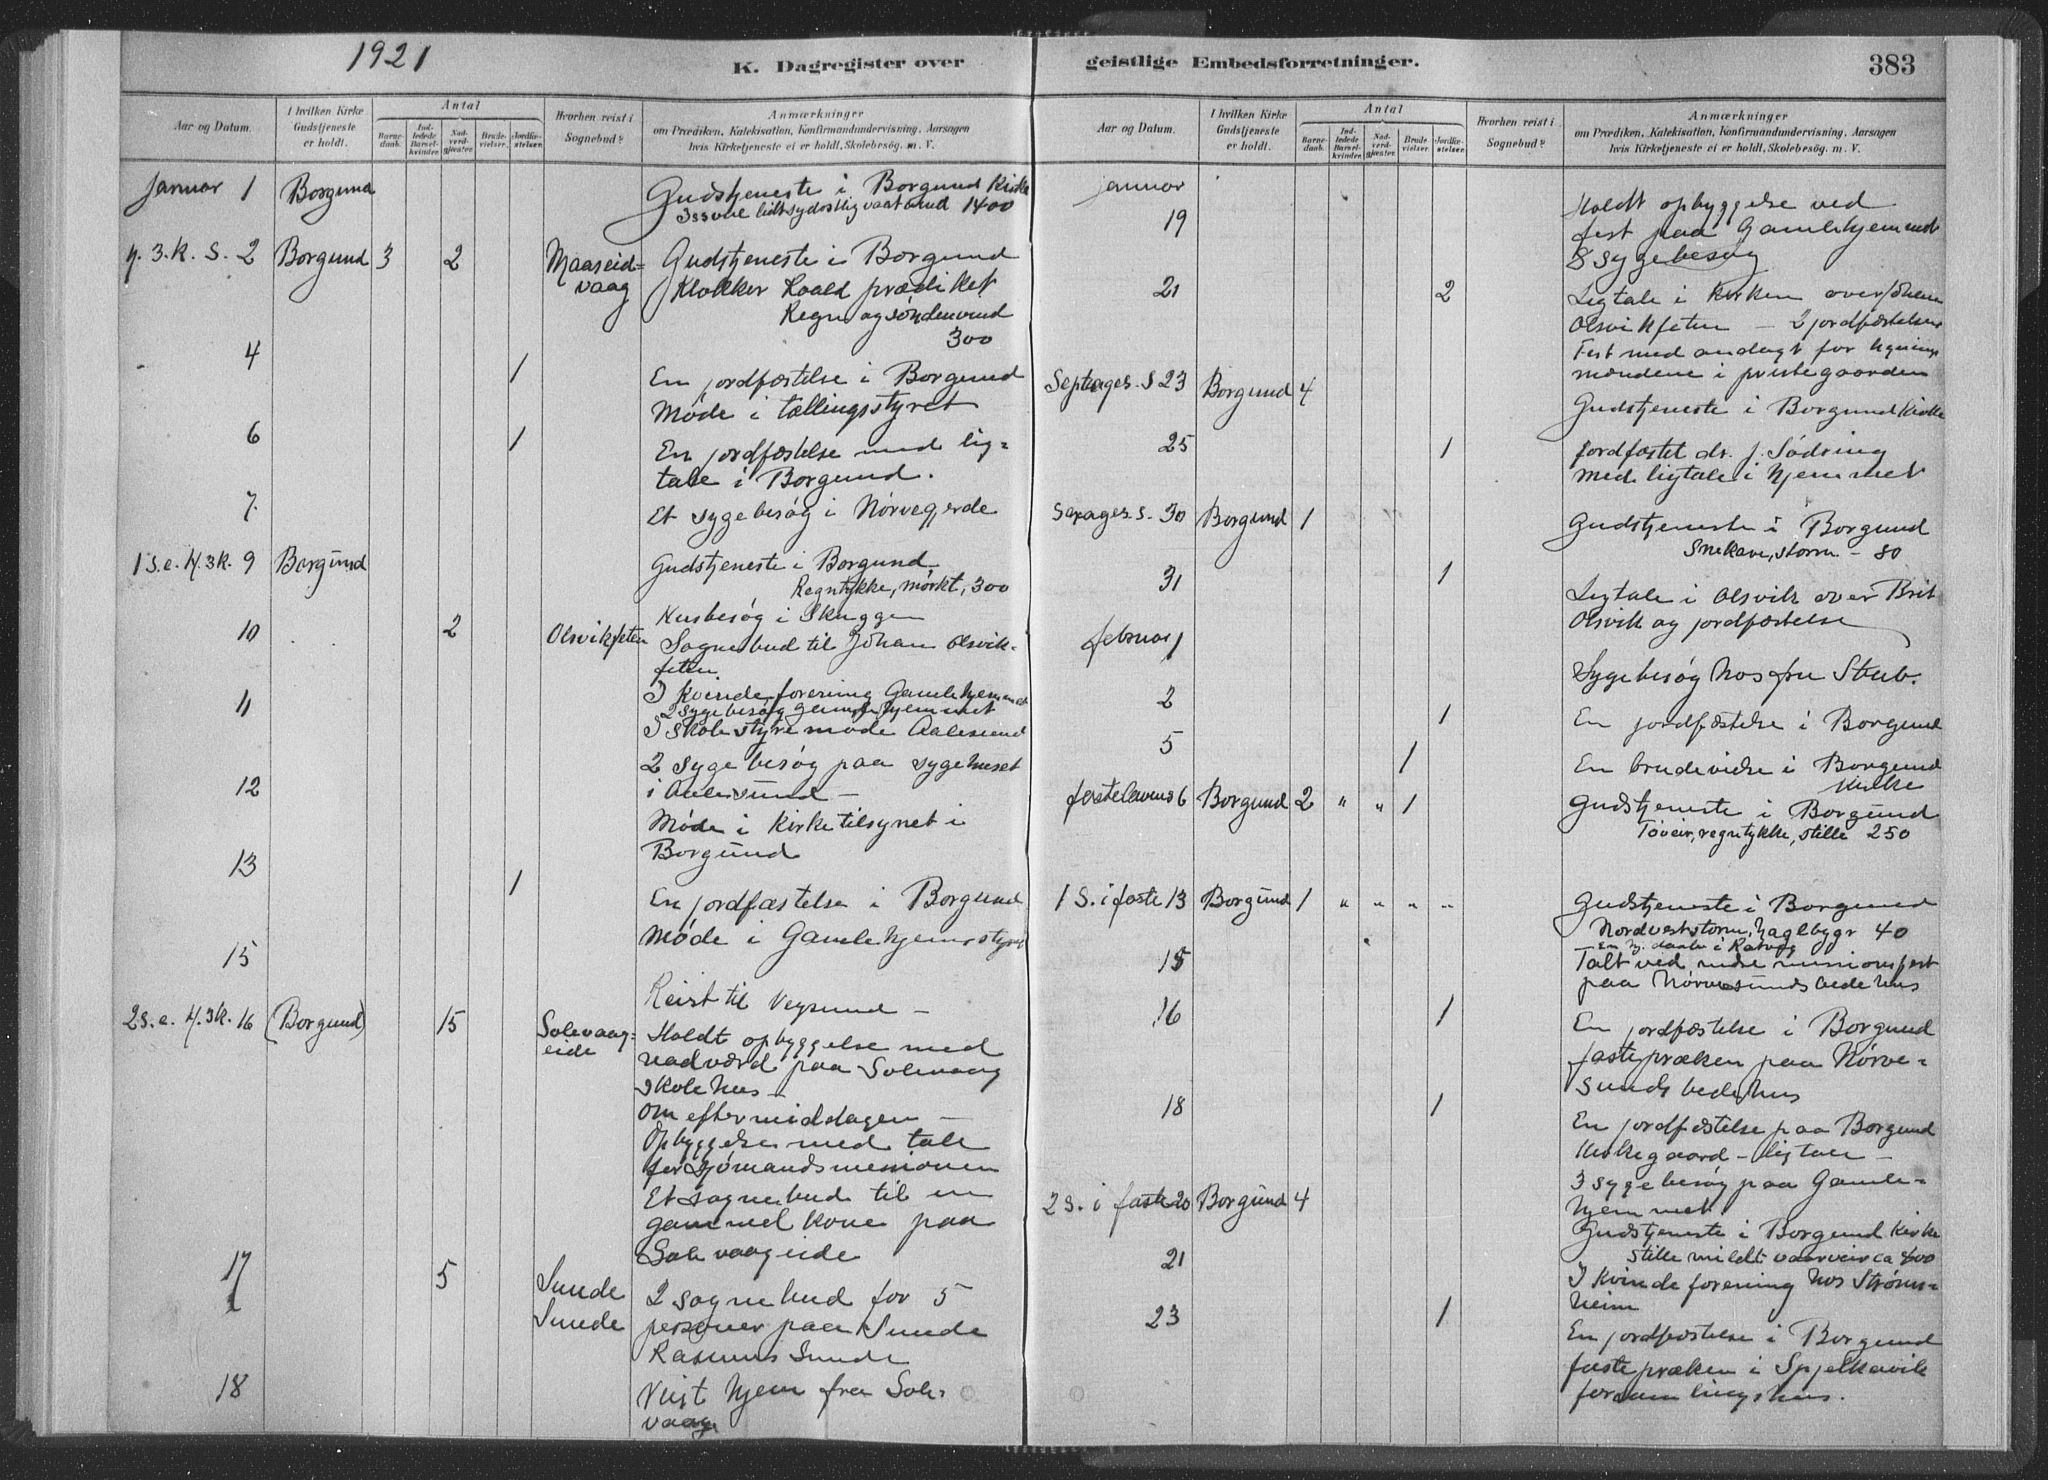 1921
K. Dagregister over
Aar og Datum.
I hvilken Kirke Gudstjeneste er holdt.
Antal
Barne-daab.
Ind-ledede Barsel-kvinder.
Nad-verd-gjæster.
Brude-vielser.
Jordfæ-stelser.
Hvorhen reist i Sognebud?
Anmærkninger
om Prædiken, Katekisation, Konfirmandundervisning, Aarsagen
hvis Kirketjeneste ei er holdt, Skolebesøg. m. V.
Januar 1 Borgund Gudstjeneste i Borgund Kirke
1400
H. 3. K. S. 2 Borgund 3 2 Maaseid- Gudstjeneste i Borgund
vaag Klokker Roald prædiket
Regn og søndenvind
300
4 1 En jordfæstelse i Borgund
Møde i tællingsstyret
6 1 En jordfæstelse med lig-
tale i Borgund.
7. Et sygebesøg i Nørvegjerde
1 S. e. H. 3 K. 9 Borgund Gudstjeneste i Borgund
Regntykke, mørkt, 300
Husbesøg i Skuggen
10 2 Olsvikfeten Sognebud til Johan Olsvik-
feten
11 I Kvindeforening Gamlehjemmet
2 sygebesøg Gamlehjemmet
I Skolestyremøde Aalesund
2 sygebesøg paa sygehuset
12 i Aalesund –
Møde i Kirketilsynet i
Borgund
13 1 En jordfæstelse i Borgund
Møde i Gamlehjemsstyret
15 Reist til Vegsund –
2 S. e. H. 3 K. 16 (Borgund) 15 Solevaag- Holdt opbyggelse med
eide nadverd paa Solevaag
Skolehus –
Om eftermiddagen –
Opbyggelse med tale
for Sjømandsmissionen
Et sognebud til en
gammel kone paa
Solevaageide
17 5 Sunde 2 sognebud for 5
Sunde personer paa Sunde
Rasmus Sunde
18 Reist hjem fra Sole-
vaag
geistlige Embedsforretninger.
383
Aar og Datum.
I hvilken Kirke Gudstjeneste er holdt.
Antal
Barne-daab.
Ind-ledede Barsel-kvinder.
Nad-verd-gjæster.
Brude-vielser.
Jordfæ-stelser.
Hvorhen reist i Sognebud?
Anmærkninger
om Prædiken, Katekisation, Konfirmandundervisning, Aarsagen
hvis Kirketjeneste ei er holdt, Skolebesøg. m. V.
Januar Holdt opbyggelse ved
19 fest paa Gamlehjemmet
8 sygebesøg
21 2 Ligtale i Kirken over Johan
Olsvikfeten – 2 jordfæstelser
Fest med andagt for
mændene i prestegaarden
Septuages. S 23 Borgund 4 Gudstjeneste i Borgund Kirke
25 1 Jordfæstet dr. J. Sødring
med ligtale i hjemmet
Sexages S. 30 Borgund 1 Gudstjeneste i Borgund
Snekave, storm – 80
31 1 Ligtale i Olsvik over Brit
Olsvik og jordfæstelse
Februar 1 Sygebesøg hos fru Stub.
2 1 En jordfæstelse i Borgund
5 1 En brudevielse i Borgund
Kirke
Fastelavens 6 Borgund 2 " " 1 Gudstjeneste i Borgund
Tøveir, regntykke, stille 250
1 S. i faste 13 Borgund 1 " " " " Gudstjeneste i Borgund
Nordveststorm, haglbygr 40
En hj. daab i
15 Talt ved indre missionsfest
paa Nørvesunds bedehus
16 1 En jordfæstelse i Borgund
Fastepræken paa Nørve-
sunds bedehus
18 1 En jordfæstelse paa Borgund
Kirkegaard – ligtale –
3 sygebesøg paa Gamle-
hjemmet
2 S. i faste 20 Borgund 4 Gudstjeneste i Borgund Kirke
Stille mildt vaarveir ca 400
21 I Kvindeforening hos Strøms-
heim
23 1 En jordfæstelse i Borgund
Fastepræken i Spjelkavik
forsamlingshus.